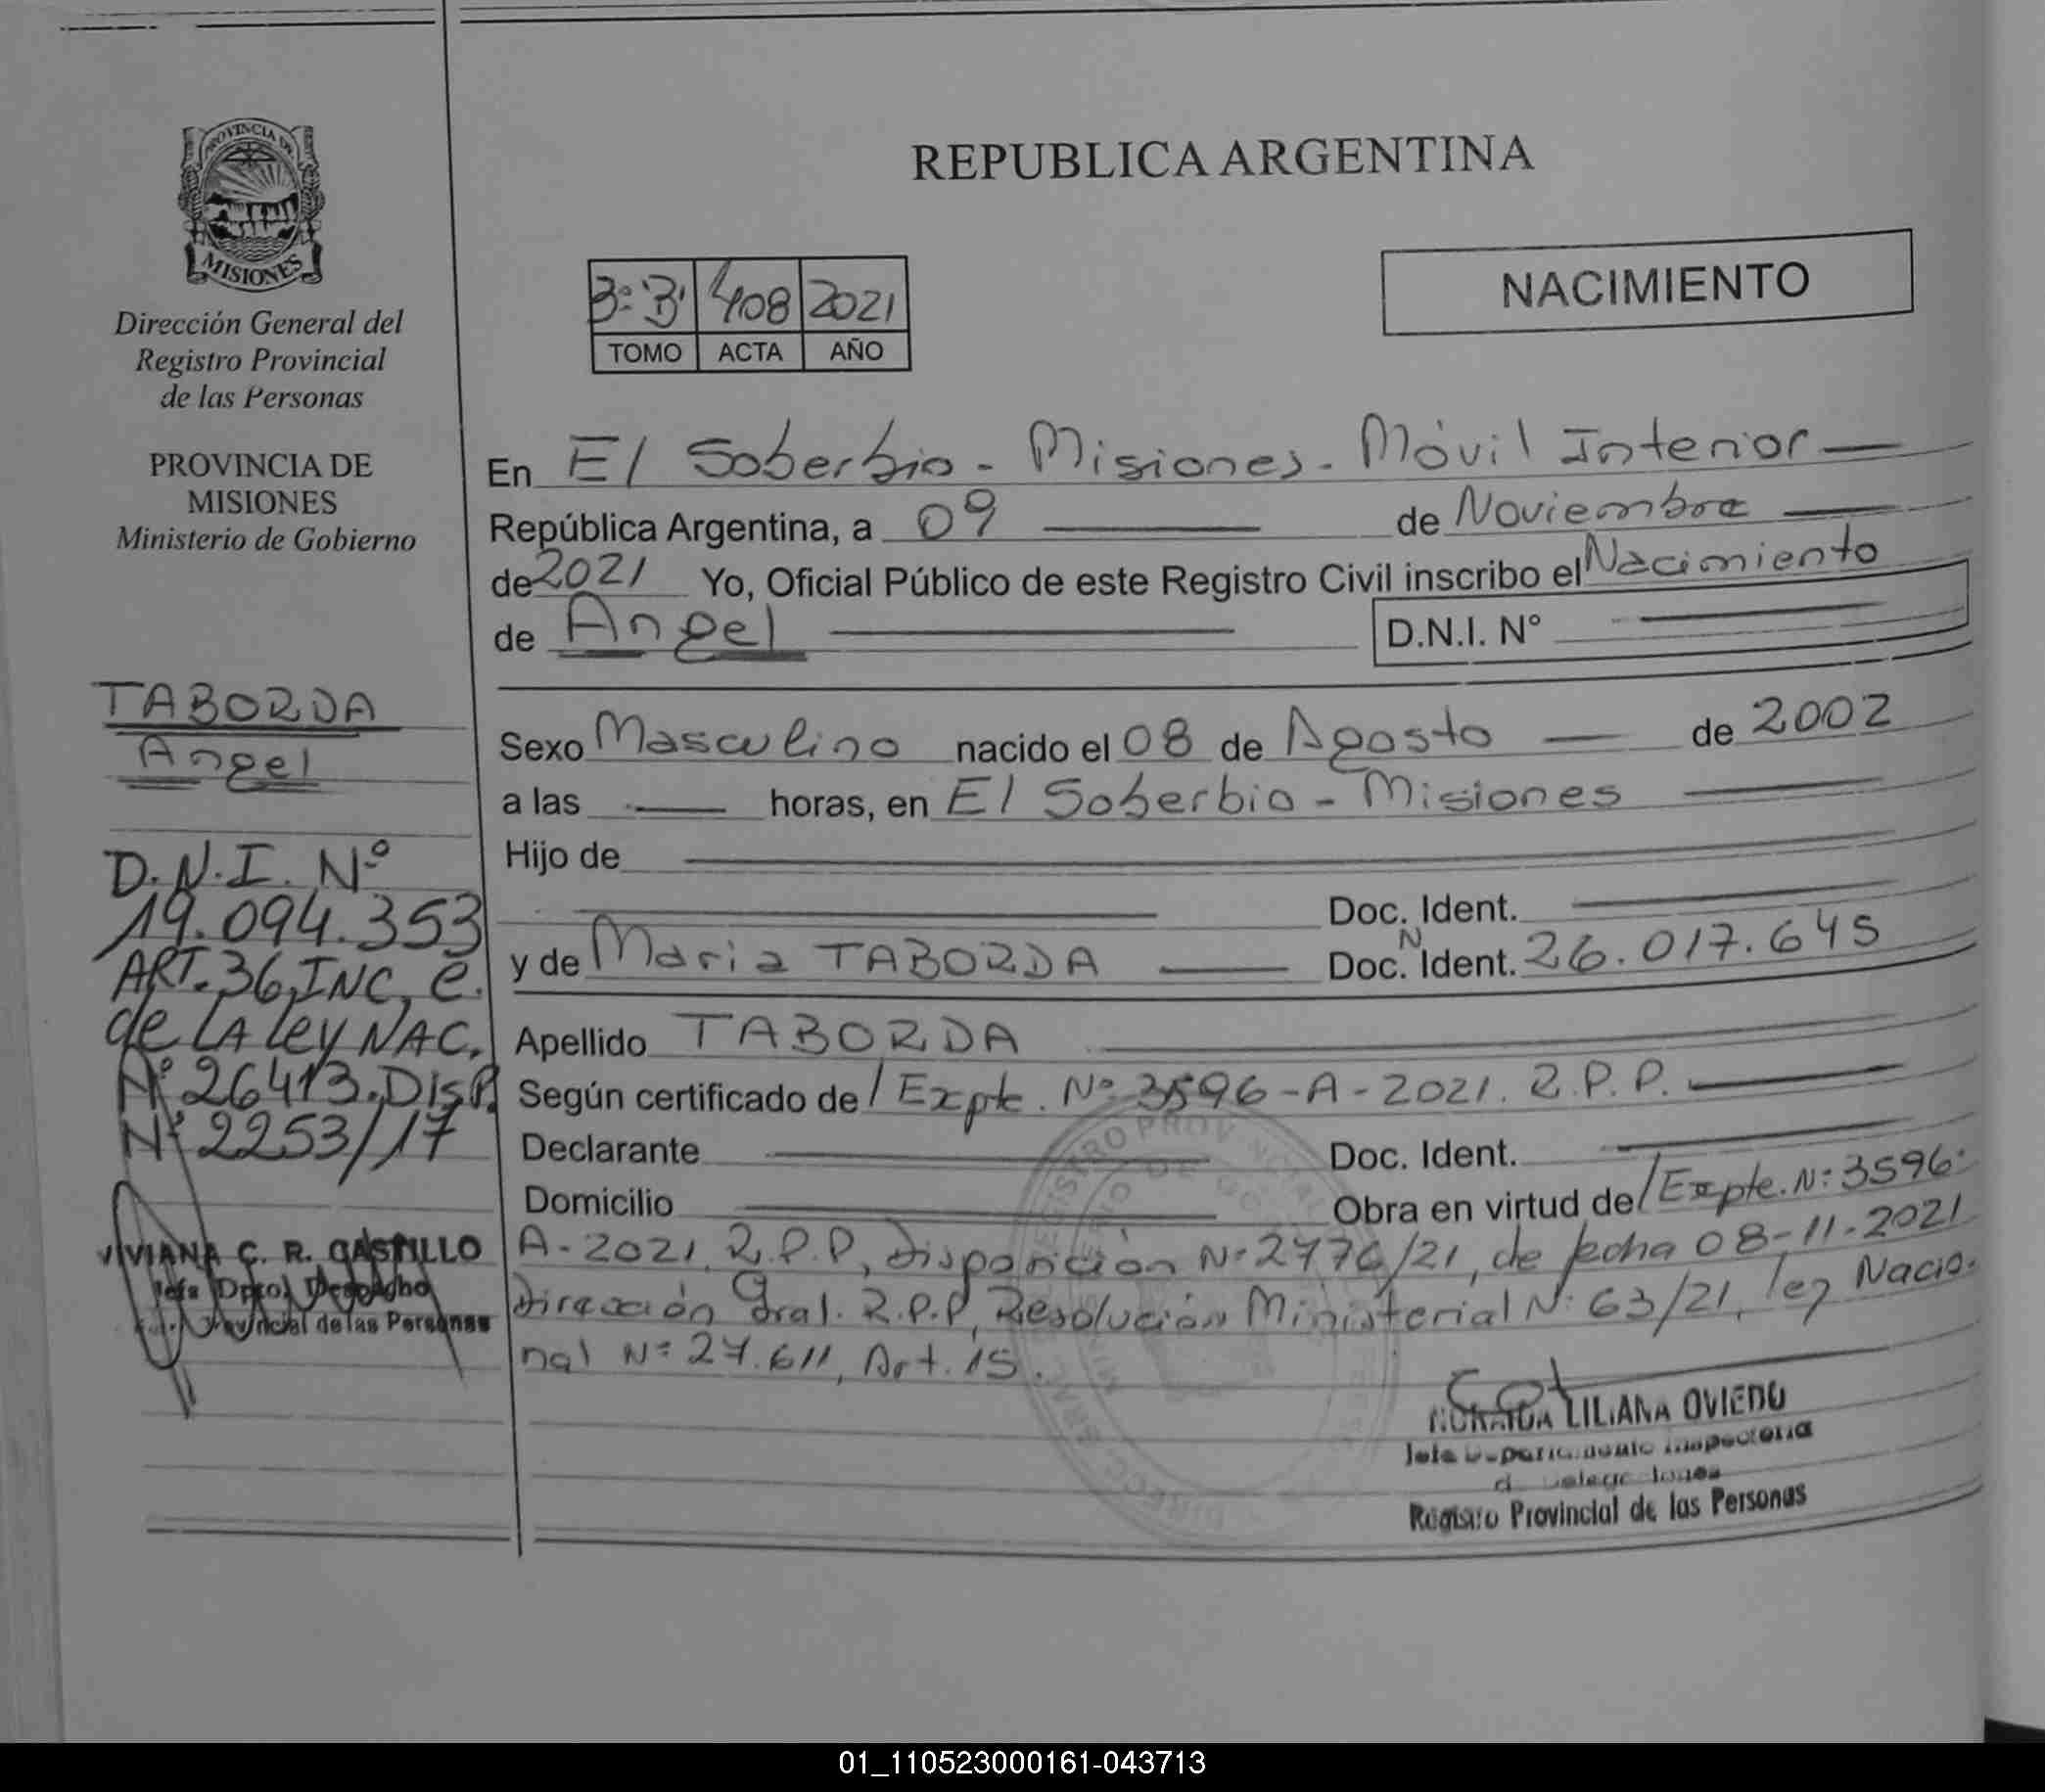 PROVINCIA DE
MISIONES
Dirección General del
Registro Provincial
de las Personas
PROVINCIA DE
MISIONES
Ministerio de Gobierno
TABORDA
Angel
D.N.I. Nº
19.094.353
ART. 36, INC, e.
de LA Ley NAC.
Nº 26413. DISP.
Nº 2253/17
VIVIANA C. R. CASTILLO
Jefa Dpto. Despacho
Provincial de las Personas
REPUBLICA ARGENTINA
3º "B" 408 2021
TOMO ACTA AÑO
NACIMIENTO
En El Soberbio - Misiones - Móvil Interior
República Argentina, a 09 de Noviembre
de 2021 Yo, Oficial Público de este Registro Civil inscribo el Nacimiento
de Angel D.N.I. N°
Sexo Masculino nacido el 08 de Agosto de 2002
a las horas, en El Soberbio - Misiones
Hijo de
Doc. Ident.
y de Maria TABORDA Doc. N Ident. 26.017.645
Apellido TABORDA
Según certificado de / Expte. Nº 3596-A-2021. R.P.P.
Declarante Doc. Ident.
Domicilio Obra en virtud de / Expte. Nº 3596-
A-2021, R.P.P, Disposición Nº 2776/21, de fecha 08-11-2021
Dirección Gral. R.P.P, Resolución Ministerial Nº 63/21, ley Nacio-
nal Nº 27.611, Art. 15.
LILIANA OVIEDO
Registro Provincial de las Personas
01_110523000161-043713